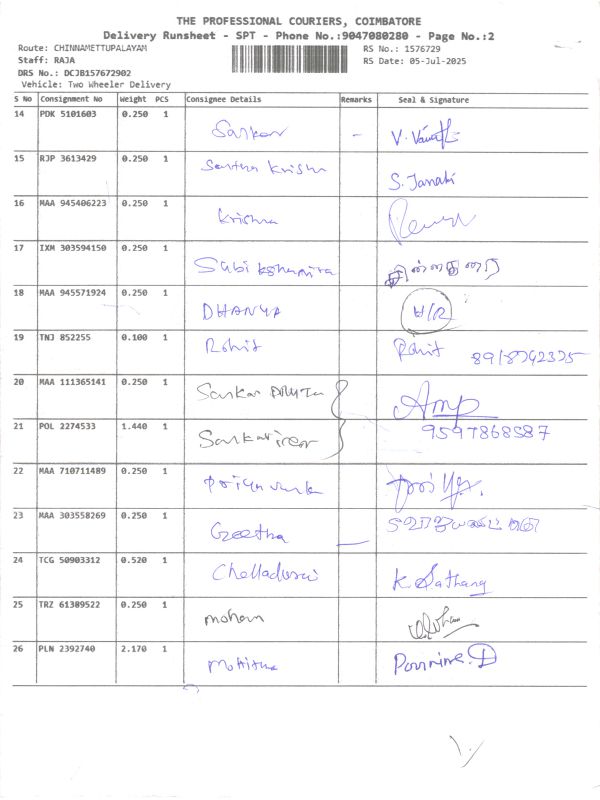 THE PROFESSIONAL COURIERS, COIMBATORE
Delivery Runsheet - SPT - Phone No.:9047080280 - Page No.:2
Route: CHINNAMETTUPALAYAM RS No.: 1576729
Staff: RAJA RS Date: 05-Jul-2025
DRS No.: DCJB157672902
Vehicle: Two Wheeler Delivery
S No Consignment No Weight PCS Consignee Details Remarks Seal & Signature
14 PDK 5101603 0.250 1 Sankar - V.
15 RJP 3613429 0.250 1 Krishn S. Janaki
16 MAA 945406223 0.250 1 Krishna
17 IXM 303594150 0.250 1
18 MAA 945571924 0.250 1 DHANYA H/R
19 TNJ 852255 0.100 1 Rohit Rohit
20 MAA 111365141 0.250 1 Sankar Amp
21 POL 2274533 1.440 1 9597868587
22 MAA 710711489 0.250 1
23 MAA 303558269 0.250 1 Geetha
24 TCG 50903312 0.520 1 Chelladurai K
25 TRZ 61389522 0.250 1 mohan
26 PLN 2392740 2.170 1 Mohitha